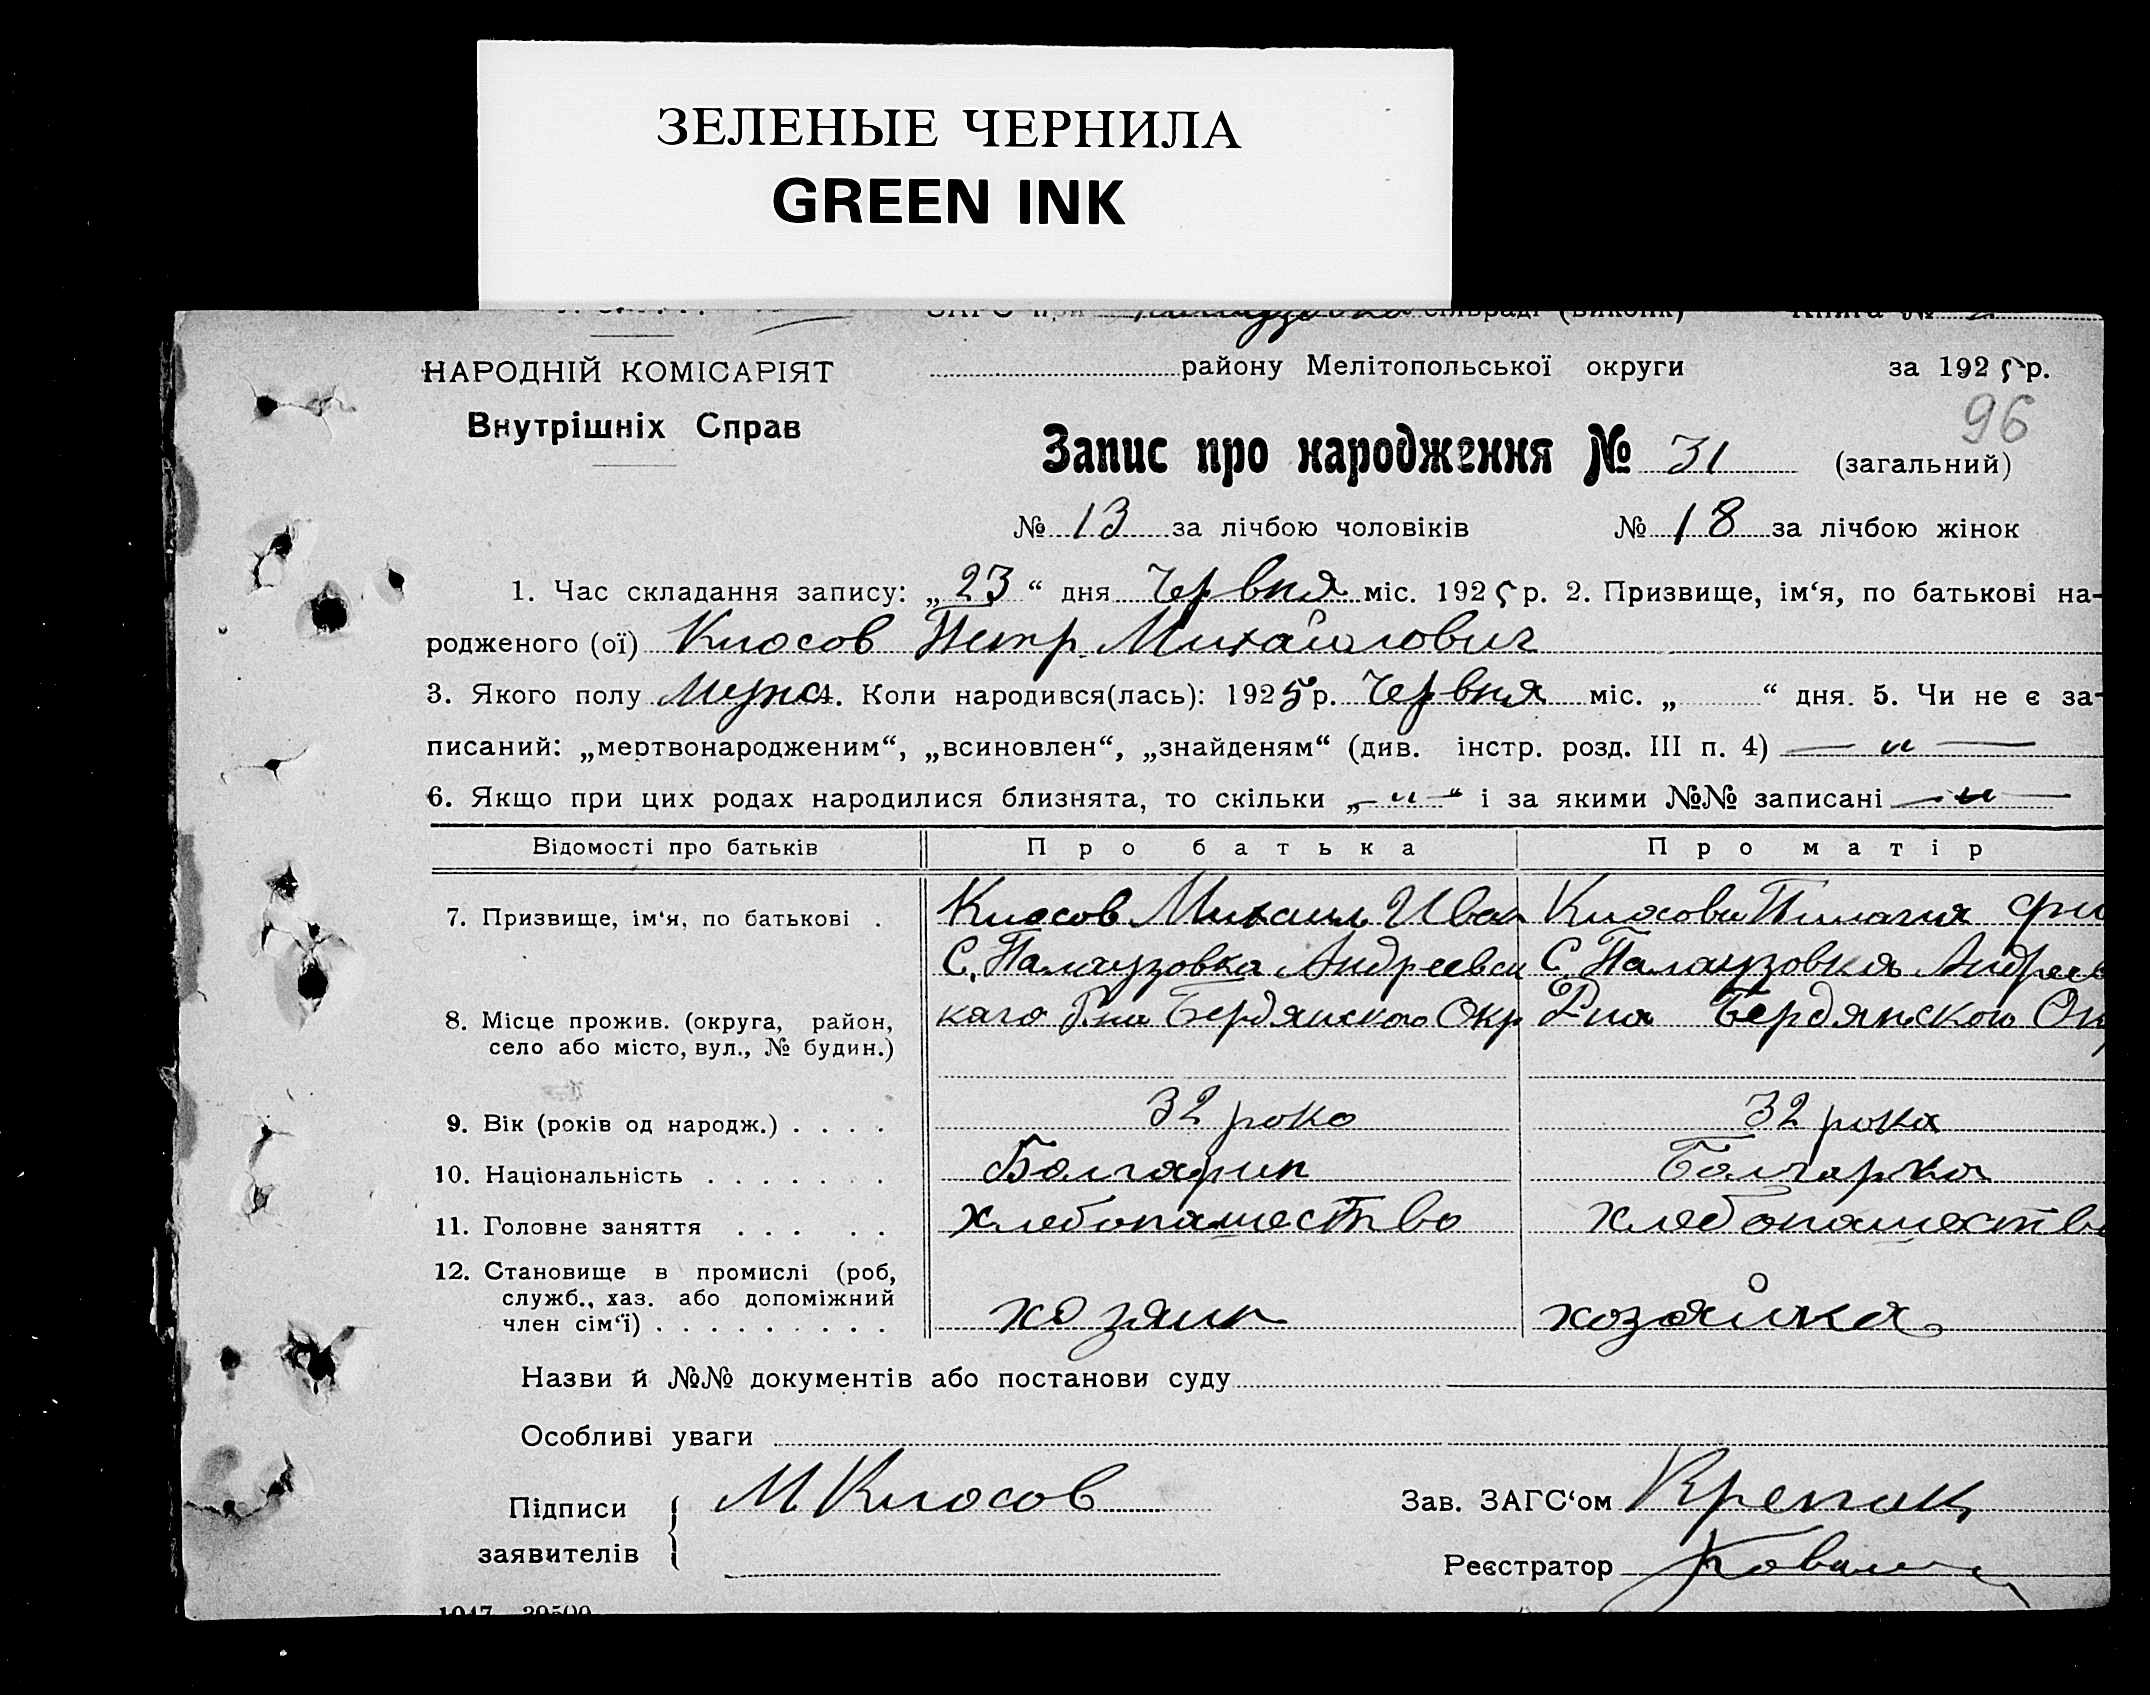 ЗЕЛЕНЫЕ ЧЕРНИЛА
GREEN INK
НАРОДНІЙ КОМІСАРІЯТ
Внутрішніх Справ
району Мелітопольської округи за 1925 р.
96
Запис про народження № 31 (загальний)
№ 13 за лічбою чоловіків № 18 за лічбою жінок
1. Час складання запису: „23“ дня Червня міс. 1925 р. 2. Призвище, ім‘я, по батькові на-
родженого (ої) Клосов Петр Михайлович
3. Якого полу Муж 4. Коли народився(лась): 1925 р. Червня міс. „ “ дня. 5. Чи не є за-
писаний: „мертвонародженим“, „всиновлен“, „знайденям“ (див. інстр. розд. III п. 4) — „ —
6. Якщо при цих родах народилися близнята, то скільки „— „ —“ і за якими №№ записані — „ —
Відомості про батьків Про батька Про матір
7. Призвище, ім‘я, по батькові . Клосов Михаил Иван Клосова Пилагия
С. Палаузовка Андреевск С. Палаузовка Андреев
8. Місце прожив. (округа, район, каго Р-на Бердянского Окр Р-на Бердянского Ок
село або місто, вул., № будин.)
9. Вік (років од народж.) . . . . 32 роко 32 рока
10. Національність . . . . . . . Болгарин Болгарка
11. Головне заняття . . . . . хлебопашество хлебопашество
12. Становище в промислі (роб,
служб., хаз. або допоміжний
член сім‘ї) . . . . . . . . . хозяин хозяйка
Назви й №№ документів або постанови суду
Особливі уваги
Підписи М Клосов Зав. ЗАГС‘ом
заявителів
Реєстратор